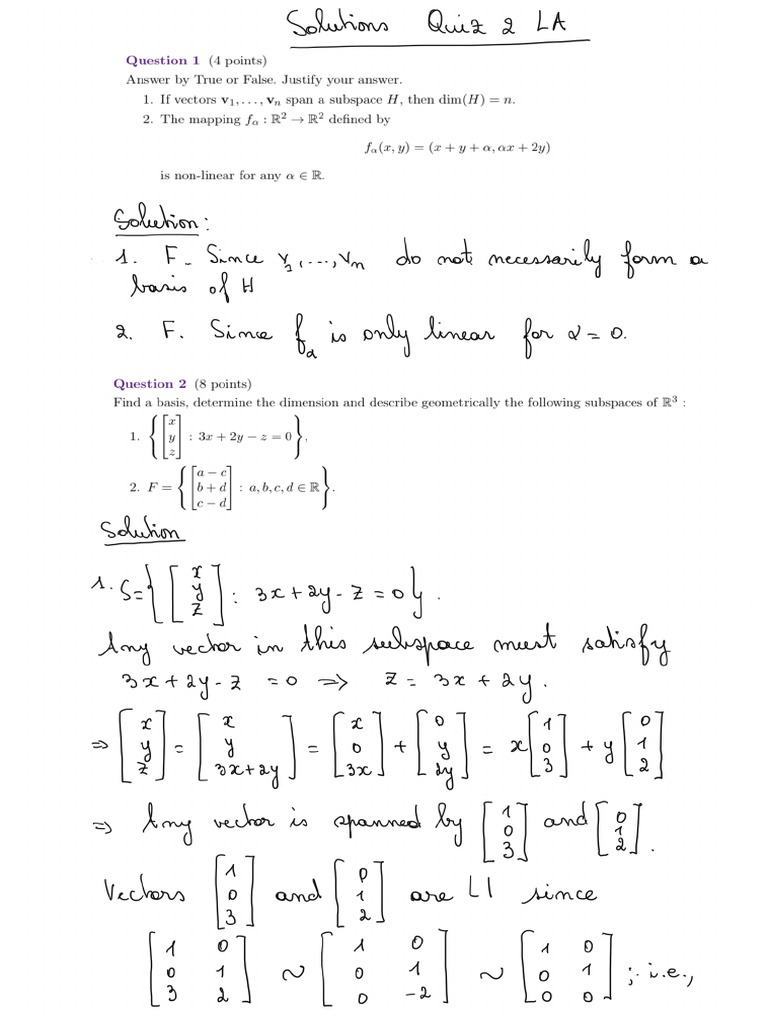 Solutions Quiz 2 LA
Question 1 (4 points)
Answer by True or False. Justify your answer.
1. If vectors v₁, . . . , vₙ span a subspace H, then dim(H) = n.
2. The mapping f_α : ℝ² → ℝ² defined by
f_α(x, y) = (x + y + α, αx + 2y)
is non-linear for any α ∈ ℝ.
Solution:
1. F. Since v₁, ..., vₙ do not necessarily form a
basis of H
2. F. Since f_α is only linear for α = 0.
Question 2 (8 points)
Find a basis, determine the dimension and describe geometrically the following subspaces of ℝ³ :
1. { [x y z] : 3x + 2y − z = 0 },
2. F = { [a − c b + d c − d] : a, b, c, d ∈ ℝ }.
Solution
1. S = { [x y z] : 3x + 2y - z = 0 }.
Any vector in this subspace must satisfy
3x + 2y - z = 0 => z = 3x + 2y.
=> [x y z] = [x y 3x+2y] = [x 0 3x] + [0 y 2y] = x [1 0 3] + y [0 1 2]
=> Any vector is spanned by [1 0 3] and [0 1 2].
Vectors [1 0 3] and [0 1 2] are LI since
[1 0 0 1 3 2] ~ [1 0 0 1 0 -2] ~ [1 0 0 1 0 0] ; i.e.,